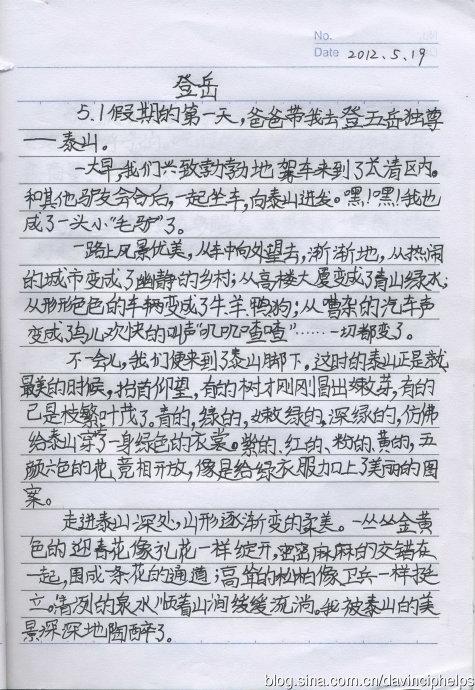 No.
Date 2012.5.19
登岳
5.1假期的第一天，爸爸带我去登五岳独尊
——泰山。
一大早，我们兴致勃勃地驾车来到了长清区内。
和其他驴友会合后，一起坐车，向泰山进发。嘿！嘿！我也
成了一头小“毛驴”了。
一路上风景优美，从车中向外望去，渐渐地，从热闹
的城市变成了幽静的乡村；从高楼大厦变成了青山绿水；
从形形色色的车辆变成了牛、羊、鸭狗；从嘈杂的汽车声
变成了鸟儿欢快的叫声“叽叽喳喳”……一切都变了。
不一会儿，我们便来到了泰山脚下，这时的泰山正是
最美的时候，抬首仰望，有的树才刚刚冒出嫩芽，有的
已是枝繁叶茂了。青的，绿的，嫩绿的，深绿的，仿佛
给泰山穿了一身绿色的衣裳。紫的、红的、粉的、黄的，五
颜六色的花，竞相开放，像是给绿衣服加上了美丽的图
案。
走进泰山深处，山形逐渐变的柔美。一丛丛金黄
色的迎春花像孔花一样绽开，密密麻麻的交错在
一起，围成一条花的通道；高耸的松柏像卫兵一样挺
立。清冽的泉水顺着山涧缓缓流淌。我被泰山的美
景深深地陶醉了。
blog.sina.com.cn/davinciphelps